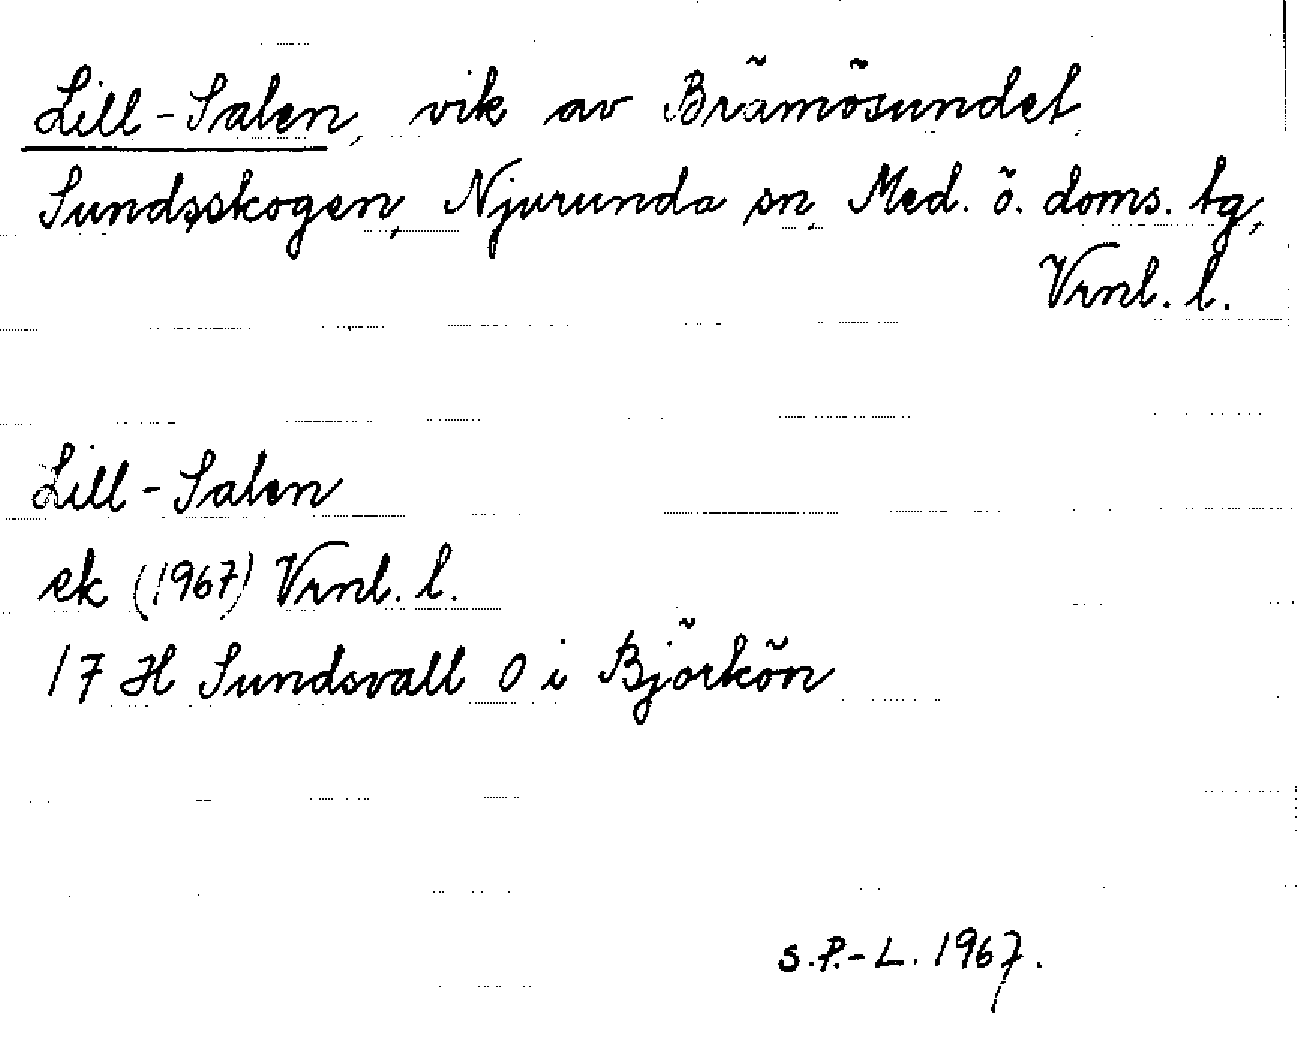 Lill-Salen, vik av Brämösundet,
Sundsskogen, Njurunda sn, Med. ö. doms. tg,
Vrnl. l.
Lill-Salen
ek (1967) Vrnl. l.
17 H Sundsvall O i Björkön
S.P.-L. 1967.